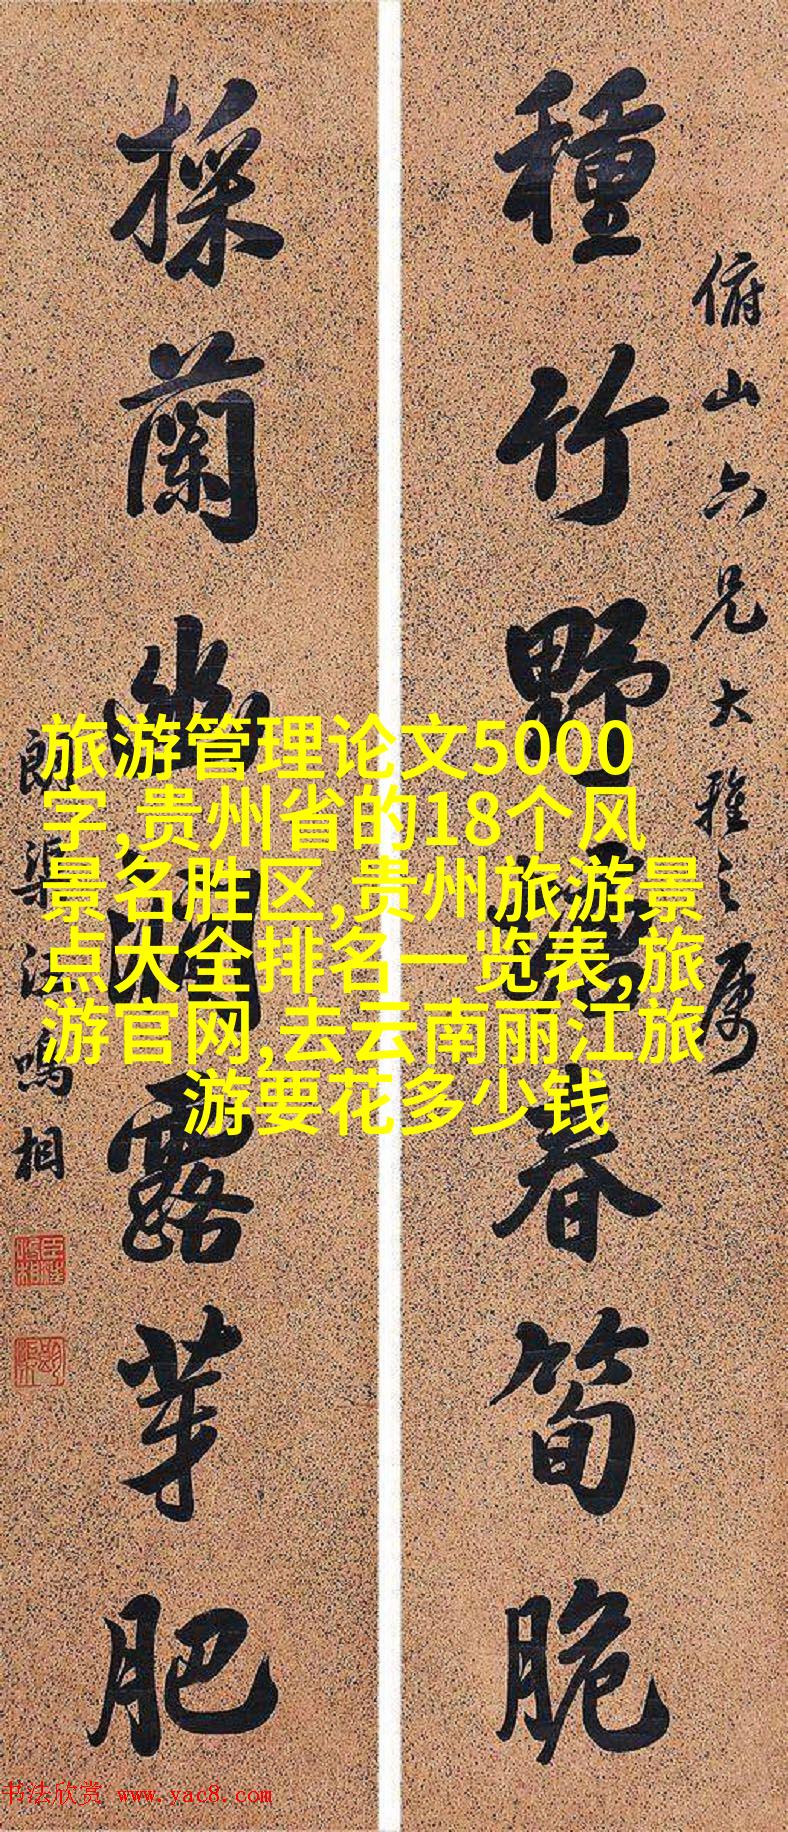 俯山六兄大雅之属
種竹野塘春筍脆
採蘭幽澗露芽肥
朗渠汪鳴相
旅游管理论文5000
字,贵州省的18个风
景名胜区,贵州旅游景
点大全排名一览表,旅
游官网,去云南丽江旅
游要花多少钱
书法欣赏 www.yac8.com